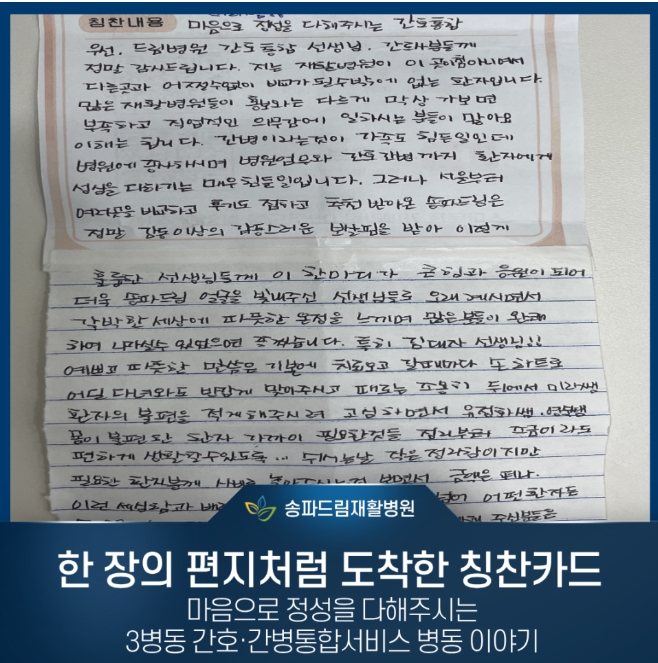 칭찬내용 마음으로 정성을 다해주시는 간호통합
우선, 드림병원 간호통합 선생님, 간병사분들께
정말 감사드립니다. 저는 재활병원이 이 곳이 처음 아니여서
다른곳과 어쩔수없이 비교가 될수밖에 없는 환자입니다.
많은 재활병원들이 홍보와는 다르게 막상 가보면
부족하고 직업적인 의무감에 일하시는 분들이 많아요
이해는 됩니다. 간병이라는것이 가족도 힘든일인데
병원에 종사하시며 병원업무와 간호간병까지 환자에게
성심을 다하기는 매우힘든일입니다. 그러나 서울부터
여러곳을 비교하고 후기도 접하고 추천 받아온 송파드림은
정말 감동이상의 감동스러운 보살핌을 받아 이렇게
훌륭한 선생님들께 이 한마디가 큰힘과 응원이 되어
더욱 송파드림 얼굴을 빛내주신 선생님들로 오래 계시면서
각박한 세상에 따뜻한 온정을 느끼며 많은분들이 완쾌
하여 나가실수 있었으면 좋겠습니다. 특히 선생님!!
예쁘고 따뜻한 말씀은 기본에 치료오고 갈때마다 손하트로
어딜 다녀와도 반갑게 맞아주시고 때로는 조용히 뒤에서
환자의 불편을 적게해주시려 고심하면서
몸이 불편한 환자 가까이 필요한것들 정리부터 조금이라도
편하게 생활할수있도록 ... 쉬는날 작은 정리함이지만
필요한 환자분께
이런 세심함과 어떤환자든
송파드림재활병원
한 장의 편지처럼 도착한 칭찬카드
마음으로 정성을 다해주시는
3병동 간호·간병통합서비스 병동 이야기